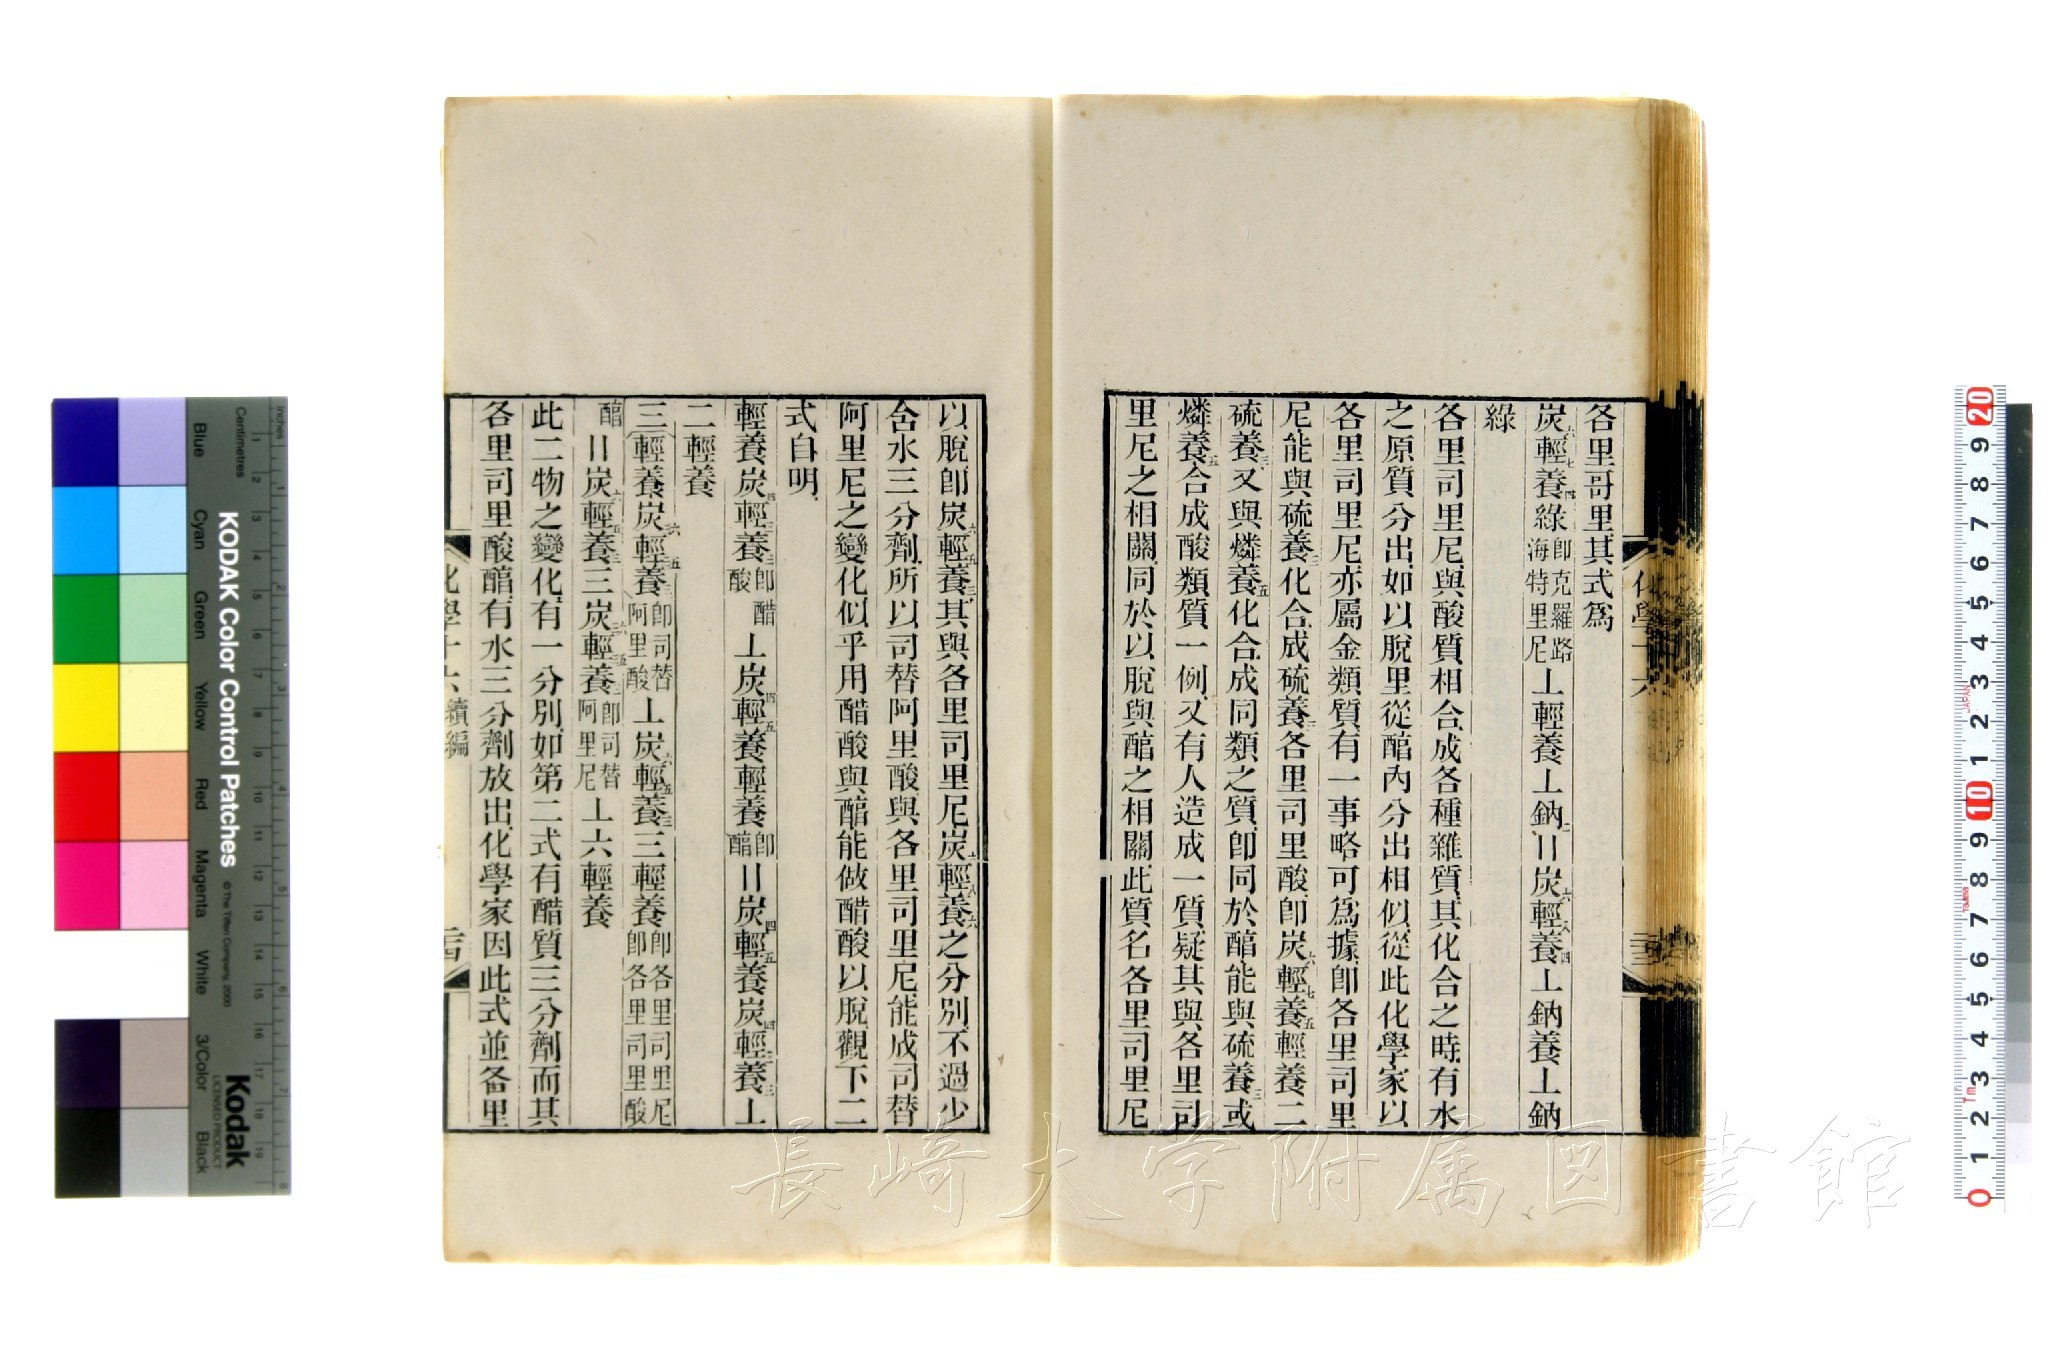 各里哥里其式爲
炭六輕七養四綠卽克羅路海特里尼丄輕養丄鈉二〢炭六輕八養四丄鈉養丄鈉
綠
各里司里尼與酸質相合成各種雜質其化合之時有水
之原質分出如以脫里從醕內分出相似從此化學家以
各里司里尼亦屬金類質有一事略可爲據卽各里司里
尼能與硫養三化合成硫養三各里司里酸卽炭六輕七養五輕養二
硫養三又與燐養五化合成同類之質卽同於醕能與硫養三或
燐養五合成酸類質一例又有人造成一質疑其與各里司
里尼之相關同於以脫與醕之相關此質名各里司里尼
以脫卽炭六輕五養三其與各里司里尼炭六輕八養六之分別不過少
含水三分劑所以司替阿里酸與各里司里尼能成司替
阿里尼之變化似乎用醋酸與醕能做醋酸以脫觀下二
式自明
輕養炭四輕三養三卽醋酸丄炭四輕五養輕養卽醕〢炭四輕五養炭四輕三養三丄
二輕養
三(輕養炭輕養卽司替阿里酸丄炭六輕五養三三輕養卽各里司里尼卽各里司里酸
醕〢炭六輕五養三三炭輕養卽司替阿里尼丄六輕養
此二物之變化有一分別如第二式有醋質三分劑而其
各里司里酸醕有水三分劑放出化學家因此式並各里
化學十六續編
KODAK Color Control Patches
Kodak
LICENSED PRODUCT
© The Tiffen Company, 2000
Centimetres
Inches
Blue
Cyan
Green
Yellow
Red
Magenta
White
3/Color
Black
長崎大学附属図書館
JAPAN